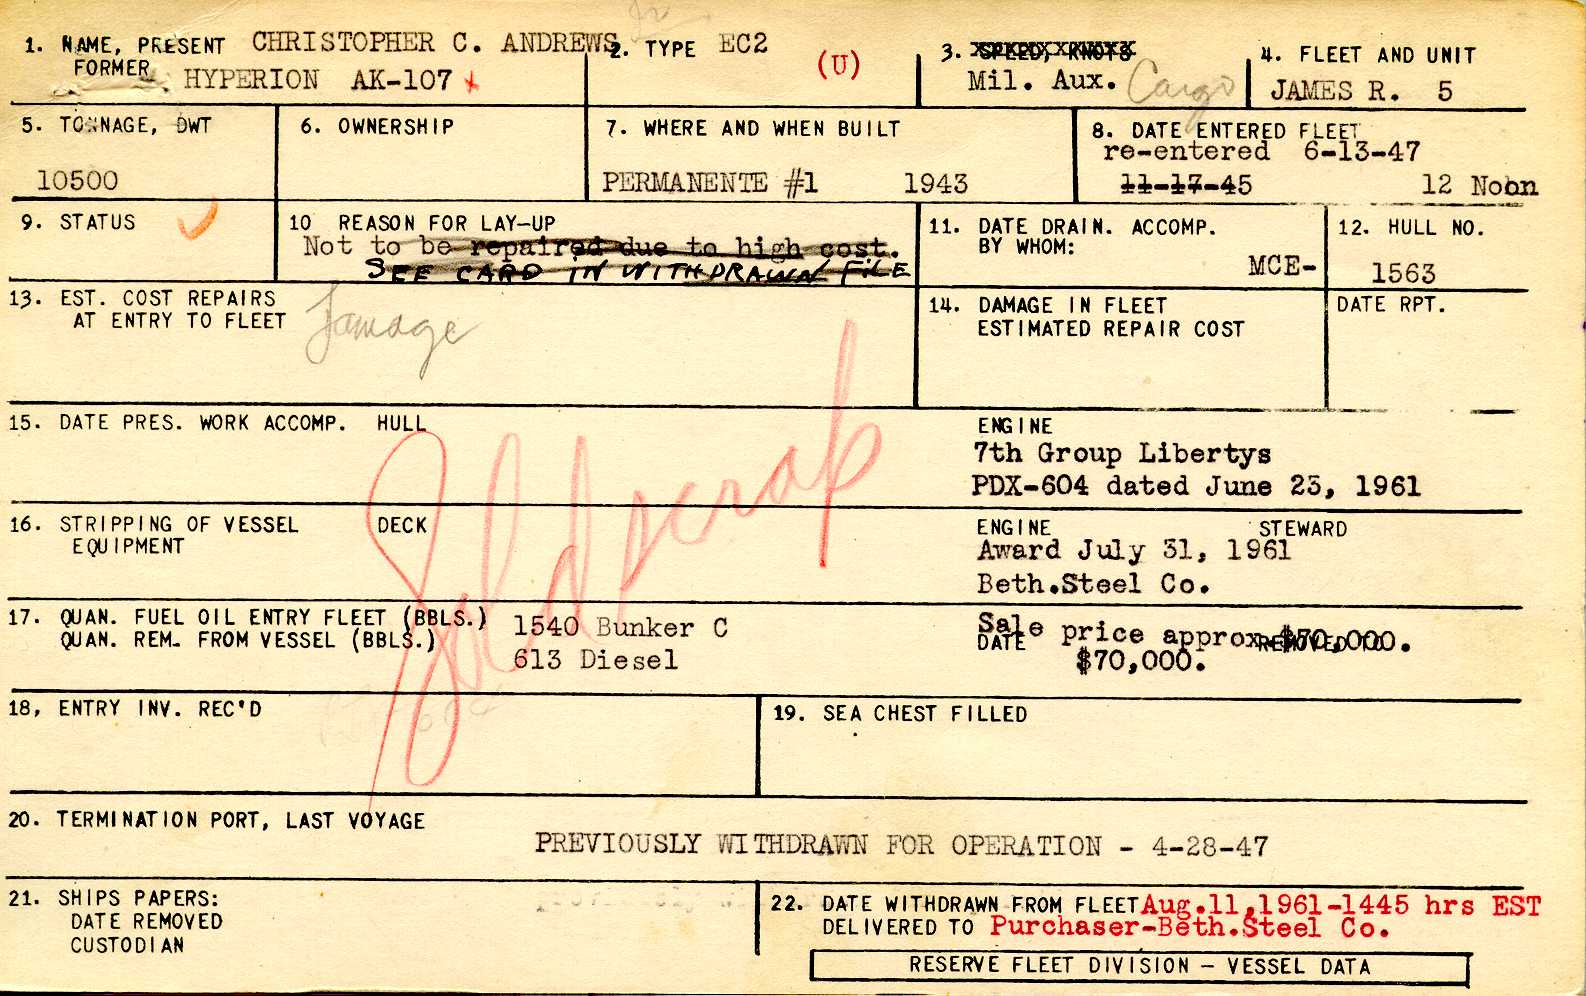 1. NAME, PRESENT CHRISTOPHER C. ANDREWS
FORMER HYPERION AK-107
2. TYPE EC2 (U)
3. SPEED, KNOTS
Mil. Aux. Cargo
4. FLEET AND UNIT
JAMES R. 5
5. TONNAGE, DWT
10500
6. OWNERSHIP
7. WHERE AND WHEN BUILT
PERMANENTE #1 1943
8. DATE ENTERED FLEET
re-entered 6-13-47
11-17-45 12 Noon
9. STATUS
10 REASON FOR LAY-UP
Not to be repaired due to high cost.
SEE CARD IN WITHDRAWN FILE
11. DATE DRAIN. ACCOMP.
BY WHOM:
12. HULL NO.
MCE-1563
13. EST. COST REPAIRS
AT ENTRY TO FLEET
14. DAMAGE IN FLEET
ESTIMATED REPAIR COST
DATE RPT.
15. DATE PRES. WORK ACCOMP. HULL
ENGINE
7th Group Libertys
PDX-604 dated June 23, 1961
Sold scrap
16. STRIPPING OF VESSEL DECK
EQUIPMENT
ENGINE STEWARD
Award July 31, 1961
Beth.Steel Co.
17. QUAN. FUEL OIL ENTRY FLEET (BBLS.) 1540 Bunker C
QUAN. REM. FROM VESSEL (BBLS.) 613 Diesel
Sale price approx $70,000.
DATE REMOVED TO
$70,000.
18, ENTRY INV. REC'D
19. SEA CHEST FILLED
20. TERMINATION PORT, LAST VOYAGE
PREVIOUSLY WITHDRAWN FOR OPERATION - 4-28-47
21. SHIPS PAPERS:
DATE REMOVED
CUSTODIAN
22. DATE WITHDRAWN FROM FLEET Aug.11,1961-1445 hrs EST
DELIVERED TO Purchaser-Beth.Steel Co.
RESERVE FLEET DIVISION – VESSEL DATA